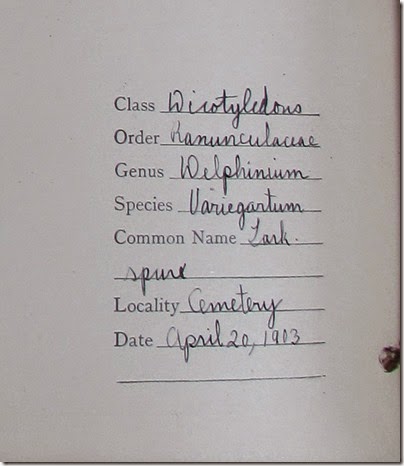 Class Dicotyledons
Order Ranunculaceae
Genus Delphinium
Species Variegartum
Common Name Lark-
spure
Locality Cemetery
Date April 20, 1903